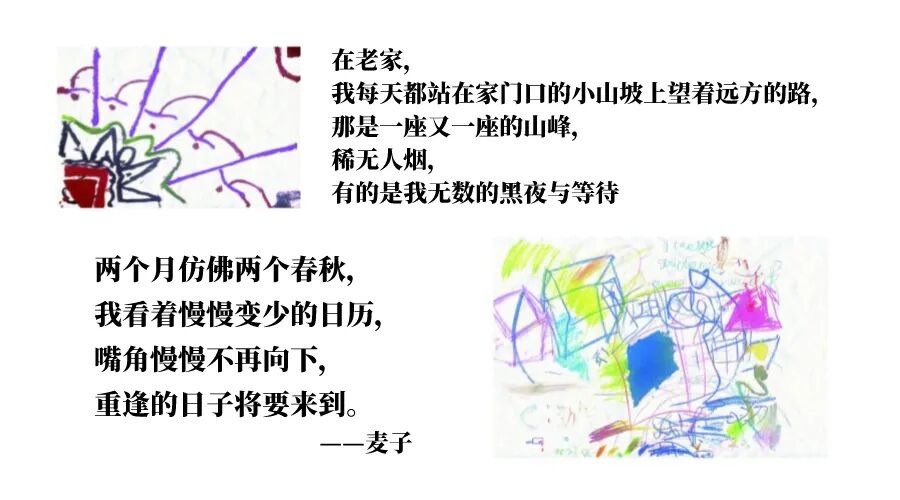 在老家，
我每天都站在家门口的小山坡上望着远方的路，
那是一座又一座的山峰，
稀无人烟，
有的是我无数的黑夜与等待
两个月仿佛两个春秋，
我看着慢慢变少的日历，
嘴角慢慢不再向下，
重逢的日子将要来到。
——麦子